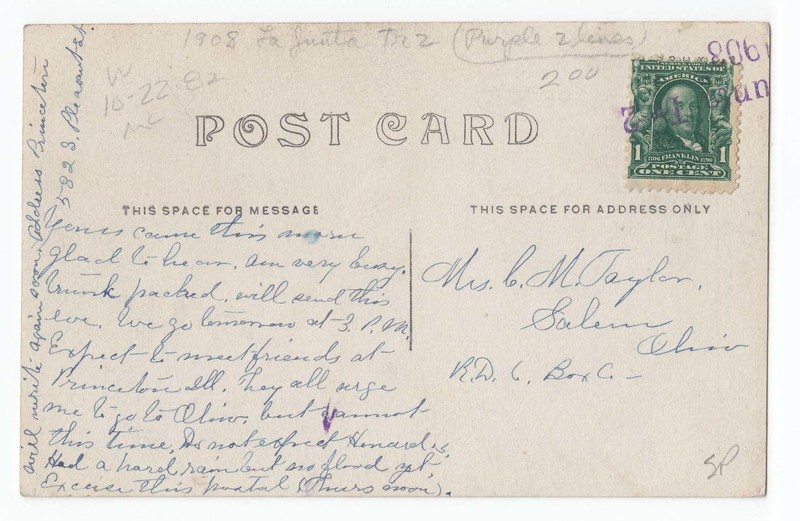 1908 La Junta Tr 2 (Purple 2 lines)
10-22-82
200
1908
SERIES 1902
UNITED STATES OF
AMERICA
1 1706 FRANKLIN 1790 1
POSTAGE
ONE CENT
POST CARD
THIS SPACE FOR MESSAGE
THIS SPACE FOR ADDRESS ONLY
Yours came this morn
glad to hear. am very busy.
trunk packed, will send this
eve. We go tomorrow at 3. P.M.
Expect to meet friends at
Princeton Ill. They all urge
me to go to Ohio, but cannot
this time. Do not expect
Had a hard rain but no flood yet,
Excuse this postal (Thurs noon).
will write again soon, Address Princeton
582 S. Pleasant St.
Mrs. C. M. Taylor,
Salem
Ohio
R.D. 6. Box C -